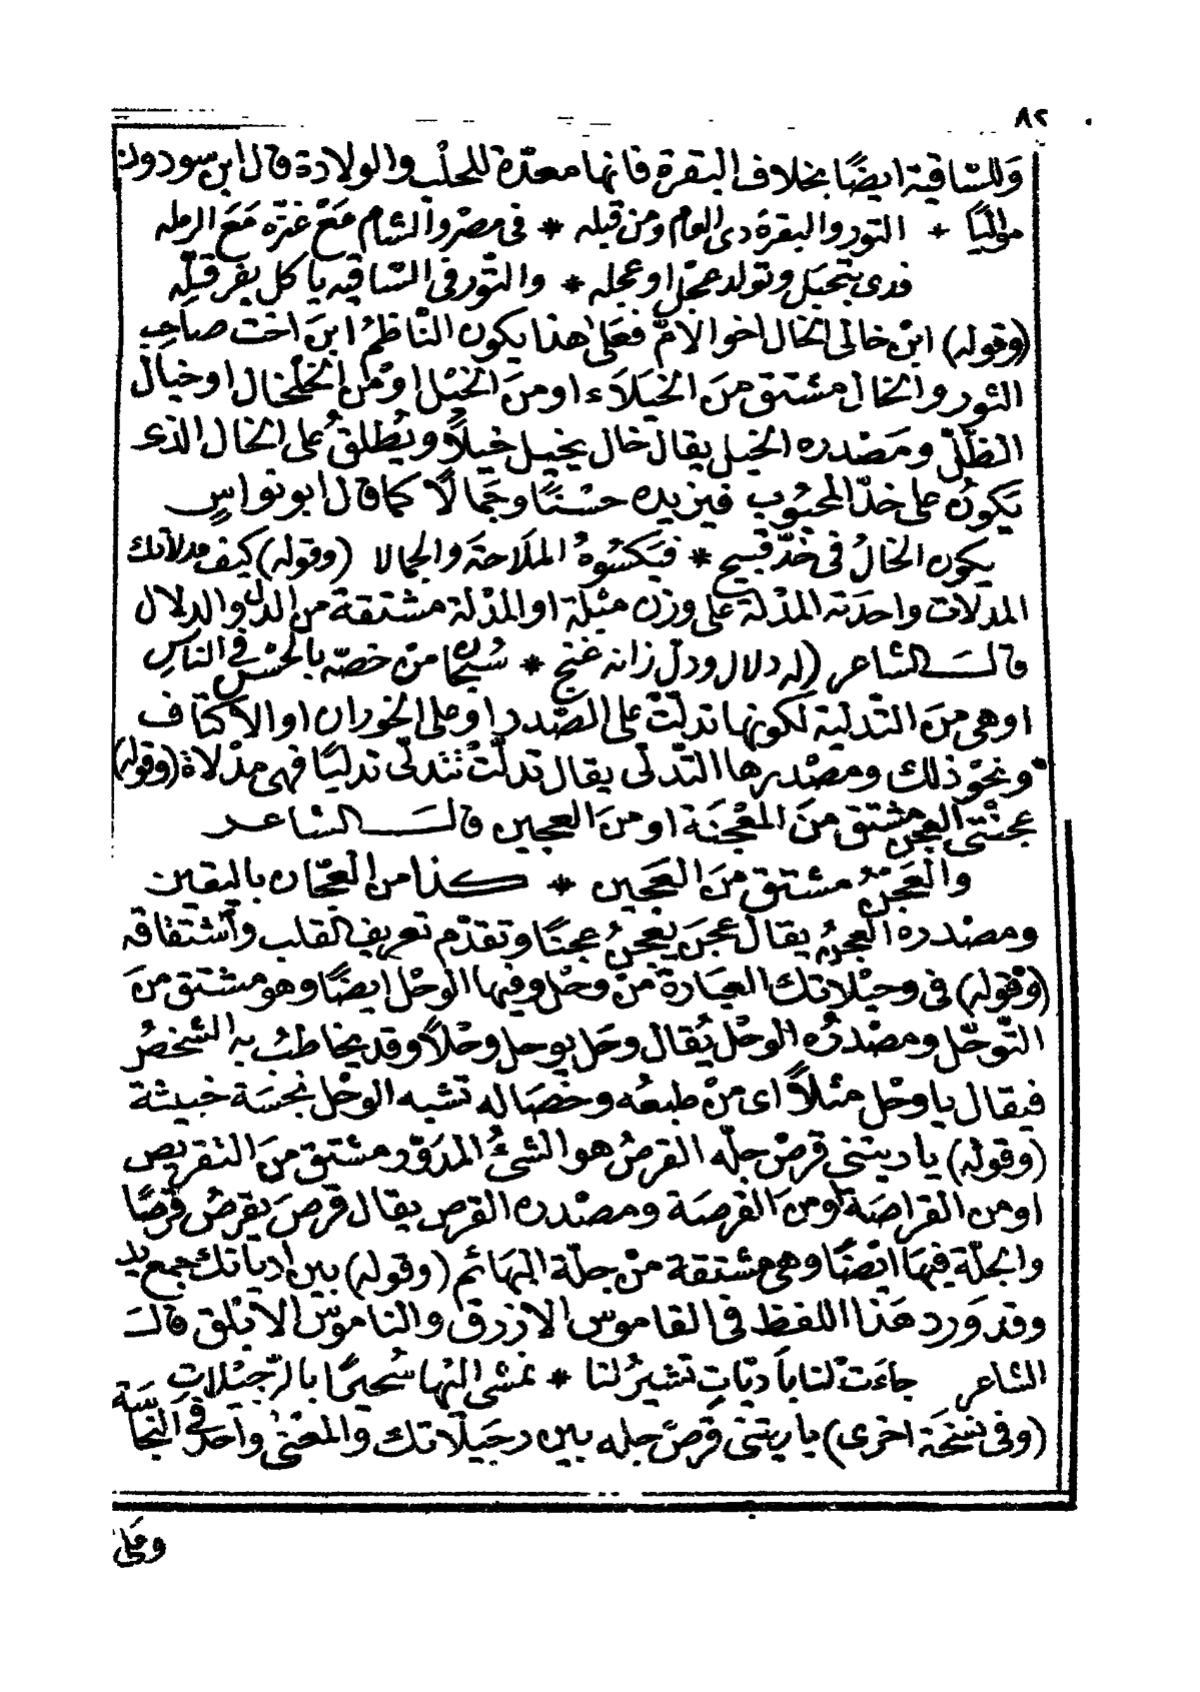 ٨٢
وللساقية ايضًا بخلاف البقرة فانها معدّة للحلب والولادة قال ابن سودون
مواليًا * التور والبقرة دى العام ومن قبله * فى مصر والشام مَعْ غزّه مَعَ الرمله
فدى بتحبل وتولد عجل او عجله * والتور فى السّاقيه ياكل بفرقلّه
(وقوله) ابنْ خالى الخال اخو الامّ فعلى هذا يكون النّاظمُ ابنَ اخت صاحب
الثور والخال مشتق منَ الخيَلَاء او منَ الخيْل او من الخلخال او خيال
الظّلّ ومَصْدره الخيل يقال خال يخيل خيلًا ويُطلقُ على الخال الذى
يَكونُ على خدّ المحبُوب فيزيده حسْنًا وجَمالًا كما قال ابو نواسٍ
يكون الخالُ فى خدّ قبيح * فيَكسُوهُ المَلَاحةَ والجمالا (وقوله) كيف مدلاتك
المدلات واحدته المدْلة على وزن مبْلة او المدْلة مشتقة من الدلّ والدلال
قالـــ الشاعر (له دلال ودلّ زانه غنج * سُبحَان منْ خصّه بالحُسْن فى الناسِ
او هى منَ التّدلية لكونها تدلّتْ على الصّدر او على الخوران او الاكتاف
ونحوْ ذلك ومصْدرها التّدلّى يقال تدلّتْ تتدلّى تدليًا فهى مدْلاة (وقوله)
عجنْتى العجن مشتق منَ المعْجَنَة او منَ العجين قالـــ الشاعـر
والعَجنُ مشتق منَ العَجين * كذا من العجّان باليقين
ومصْدره العجنُ يقال عجنَ يَعجنُ عجنًا وتقدّم تعريف القلب وأشتقاقه
(وقوله) فى وحيْلاتك العبَارة منْ وحْل وفيها الوحْل ايضًا وهو مشتق منَ
التّوحّل ومصْدرُه الوحْل يُقال وحَل يوحل وحْلًا وقد يخاطبُ به الشخصُ
فيقال يا وحْل مثلًا اى منْ طبعُه وخصَاله تشبه الوحْل نجسَة خبيثة
(وقوله) يا ديتنى قرصْ جلّه القرصُ هو الشئُ المدوّر مشتق منَ التقريص
او من القراصَة او منَ القرصَة ومصْدره القرص يقال قرصَ يقرصُ قرصًا
والجلّة فيهَا ايضًا وهى مشتقة منْ جلّة البهائم (وقوله) بين ادياتك جمع يد
وقد وَرد هَذا اللفظ فى القاموس الازرق والناموس الابْلق قالـــ
الشاعر جاءت لنا بأديّاتٍ تشيرُ لنا * نمشى اليْهَا سُحيرًا بالرّجيْلاتِ
(وفى نسْخة اخرى) يا ريتنى قرصْ جله بين رجَيلاتك والمعْنى واحد فى النجَاسَة
وعَلى